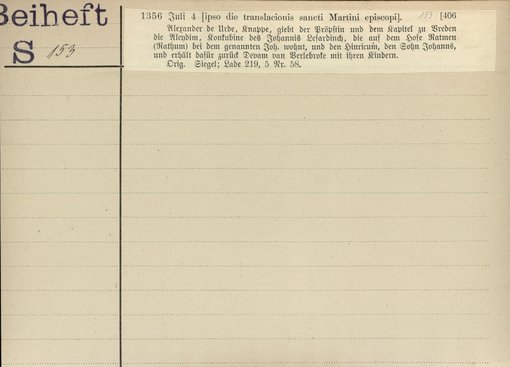 Beiheft
S 153
1356 Juli 4 [ipso die translacionis sancti Martini episcopi]. 153 [406
Alexander de Urde, Knappe, giebt der Pröpstin und dem Kapitel zu Vreden
die Aleydim, Konkubine des Johannis Lefardinch, die auf dem Hofe Ratmen
(Rathum) bei dem genannten Joh. wohnt, und den Hinricum, den Sohn Johanns,
und erhält dafür zurück Devam van Verlebroke mit ihren Kindern.
Orig. Siegel; Lade 219, 5 Nr. 58.